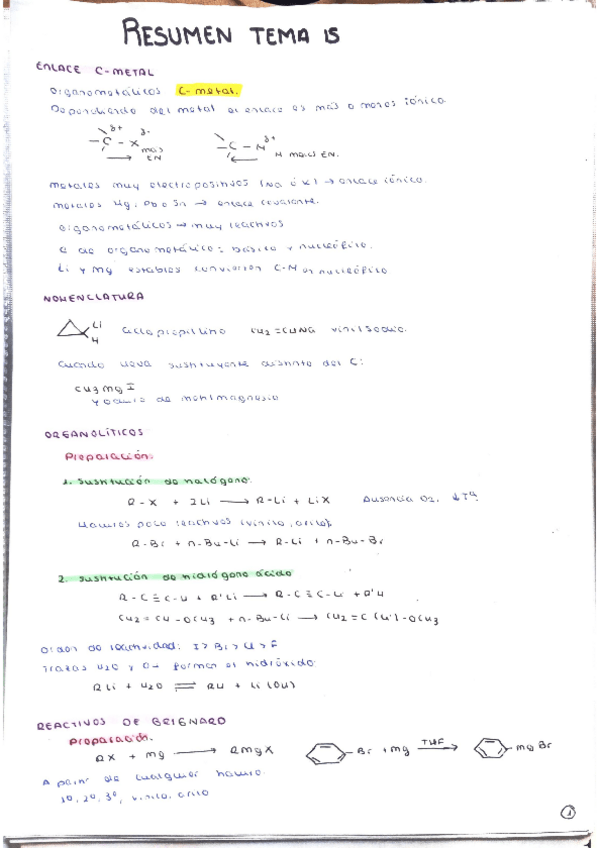 RESUMEN TEMA 15
ENLACE C-METAL
organometálicos C-metal.
Dependiendo del metal el enlace es más o menos iónico.
δ+ δ- δ+
-C-X -C-M
más EN M menos EN.
metales muy electropositivos (Na ó K) → enlace iónico.
metales Hg, Pb o Sn → enlace covalente.
organometálicos → muy reactivos
C de organometálico: básico y nucleófilo.
Li y Mg estables
NOMENCLATURA
Li
H ciclopropillitio CH2=CHNa vinilsodio.
Cuando lleva sustituyente distinto del C:
CH3MgI
yoduro de metilmagnesio
ORGANOLÍTICOS
Preparación:
1. Sustitución de halógeno.
R-X + 2Li → R-Li + LiX Ausencia O2, ↓Tª
Haluros poco reactivos (vinilo, arilo).
R-Br + n-Bu-Li → R-Li + n-Bu-Br
2. Sustitución de hidrógeno ácido
R-C≡C-H + R'Li → R-C≡C-Li + R'H
CH2=CH-OCH3 + n-Bu-Li → CH2=C(Li)-OCH3
Orden de reactividad: I > Br > Cl > F
Trazas H2O y O2 forman el hidróxido:
RLi + H2O ⇌ RH + Li(OH)
REACTIVOS DE GRIGNARD
Preparación.
RX + Mg → RMgX -Br + Mg THF → -MgBr
A partir de cualquier haluro.
1º, 2º, 3º, vinilo, arilo
1